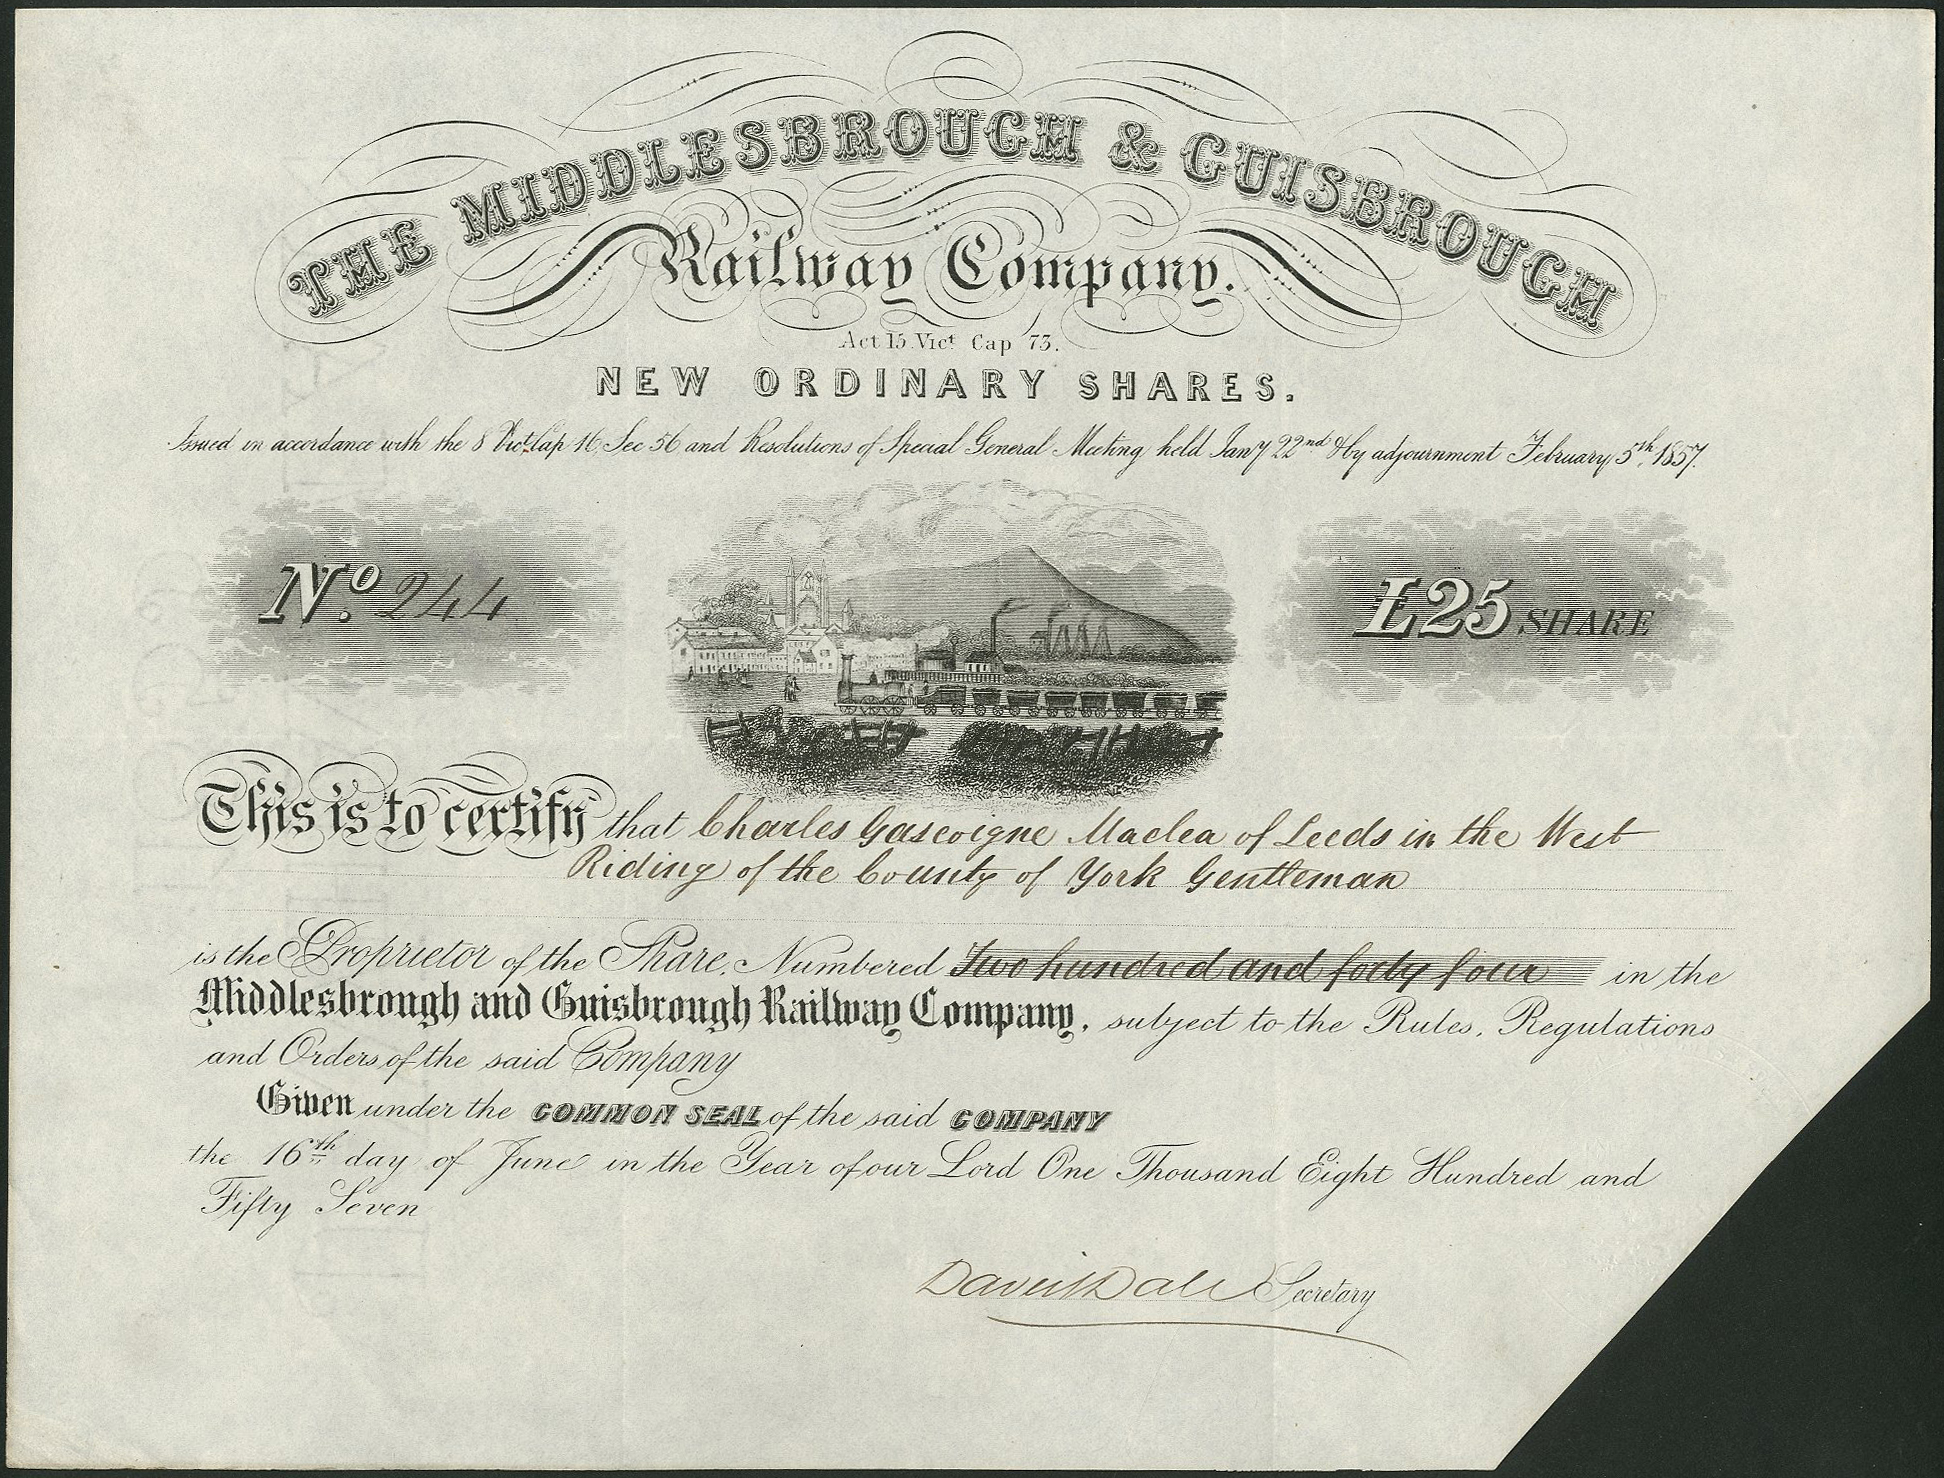 THE MIDDLESBROUGH & GUISBROUGH
Railway Company.
Act 15 Vict Cap 73.
NEW ORDINARY SHARES.
Issued in accordance with the 8 Vict. Cap 16, Sec 56 and Resolutions of Special General Meeting held Jany 22nd & by adjournment February 5th 1857.
No. 244
£25 SHARE
This is to certify that Charles Gascoigne Maclea of Leeds in the West
Riding of the County of York Gentleman
is the Proprietor of the Share, Numbered Two hundred and forty four in the
Middlesbrough and Guisbrough Railway Company, subject to the Rules, Regulations
and Orders of the said Company
Given under the COMMON SEAL of the said COMPANY
the 16th day of June in the Year of our Lord One Thousand Eight Hundred and
Fifty Seven
David Dale Secretary